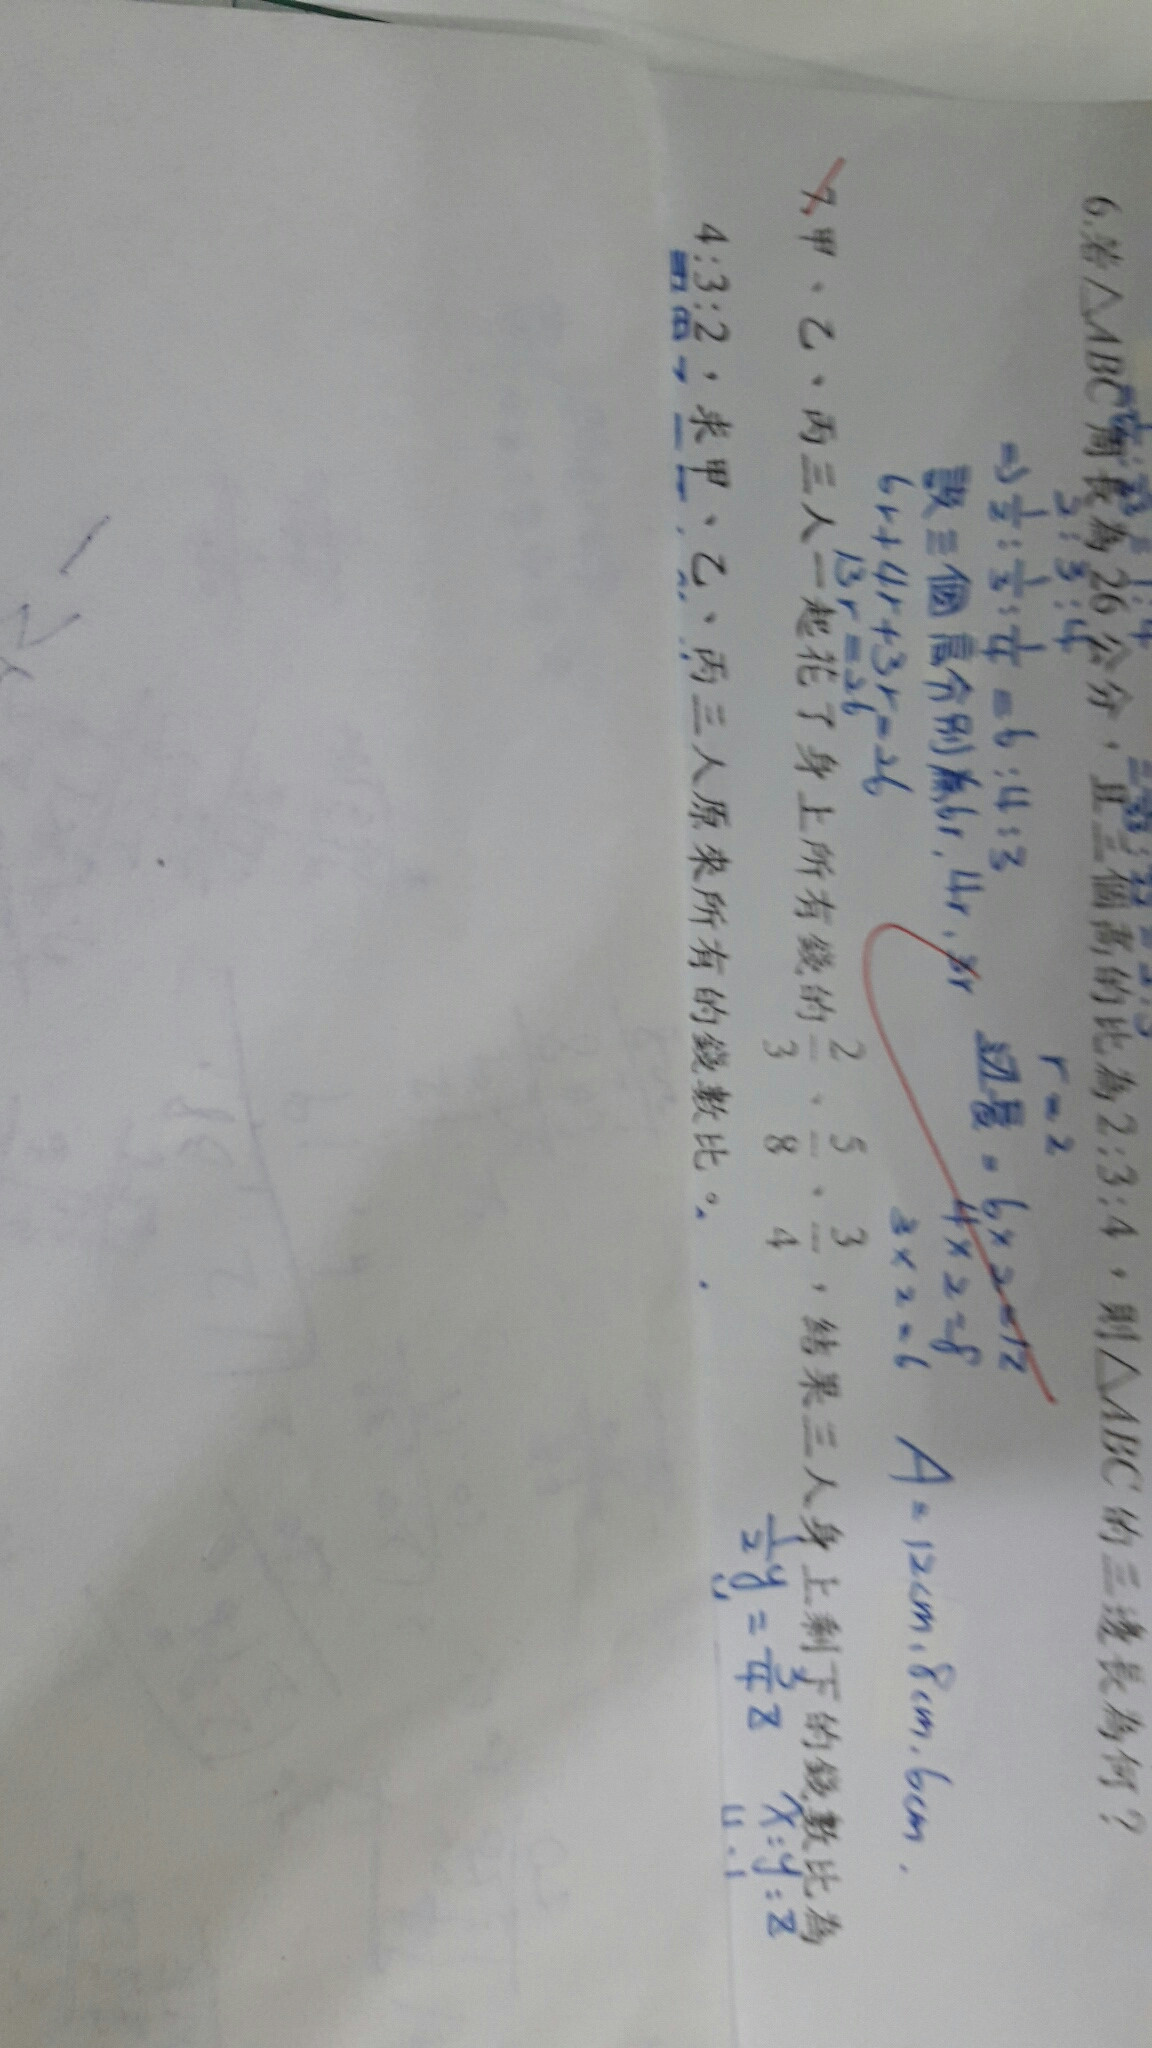 6.若△ABC周長為26公分，且三個高的比為2:3:4，則△ABC的三邊長為何？
2:3:4
⇒ 1/2:1/3:1/4=6:4:3
r=2
設三個高分別為6r,4r,3r
邊長=6×2=12
4×2=8
3×2=6
6r+4r+3r=26
13r=26
A=12cm,8cm,6cm.
7.甲、乙、丙三人一起花了身上所有錢的2/3、5/8、3/4，結果三人身上剩下的錢數比為
4:3:2，求甲、乙、丙三人原來所有的錢數比。
1/2y=3/4z
x:y:z